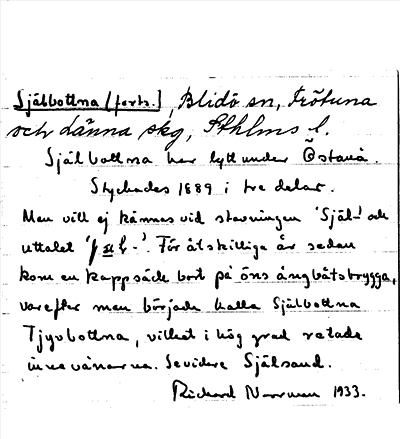 Själbottna (forts.), Blidö sn, Frötuna
och Länna skg, Sthlms l.
Själbottna har lytt under Östanå.
Styckades 1889 i tre delar.
Man vill ej kännas vid stavningen 'Själ-' och
uttalet
För åtskilliga år sedan
kom en kappsäck bort på öns ångbåtsbrygga,
varefter man började kalla Själbottna
Tjyvbottna, vilket i hög grad retade
invånarna. Se vidare Själsand.
Richard Norrman 1933.